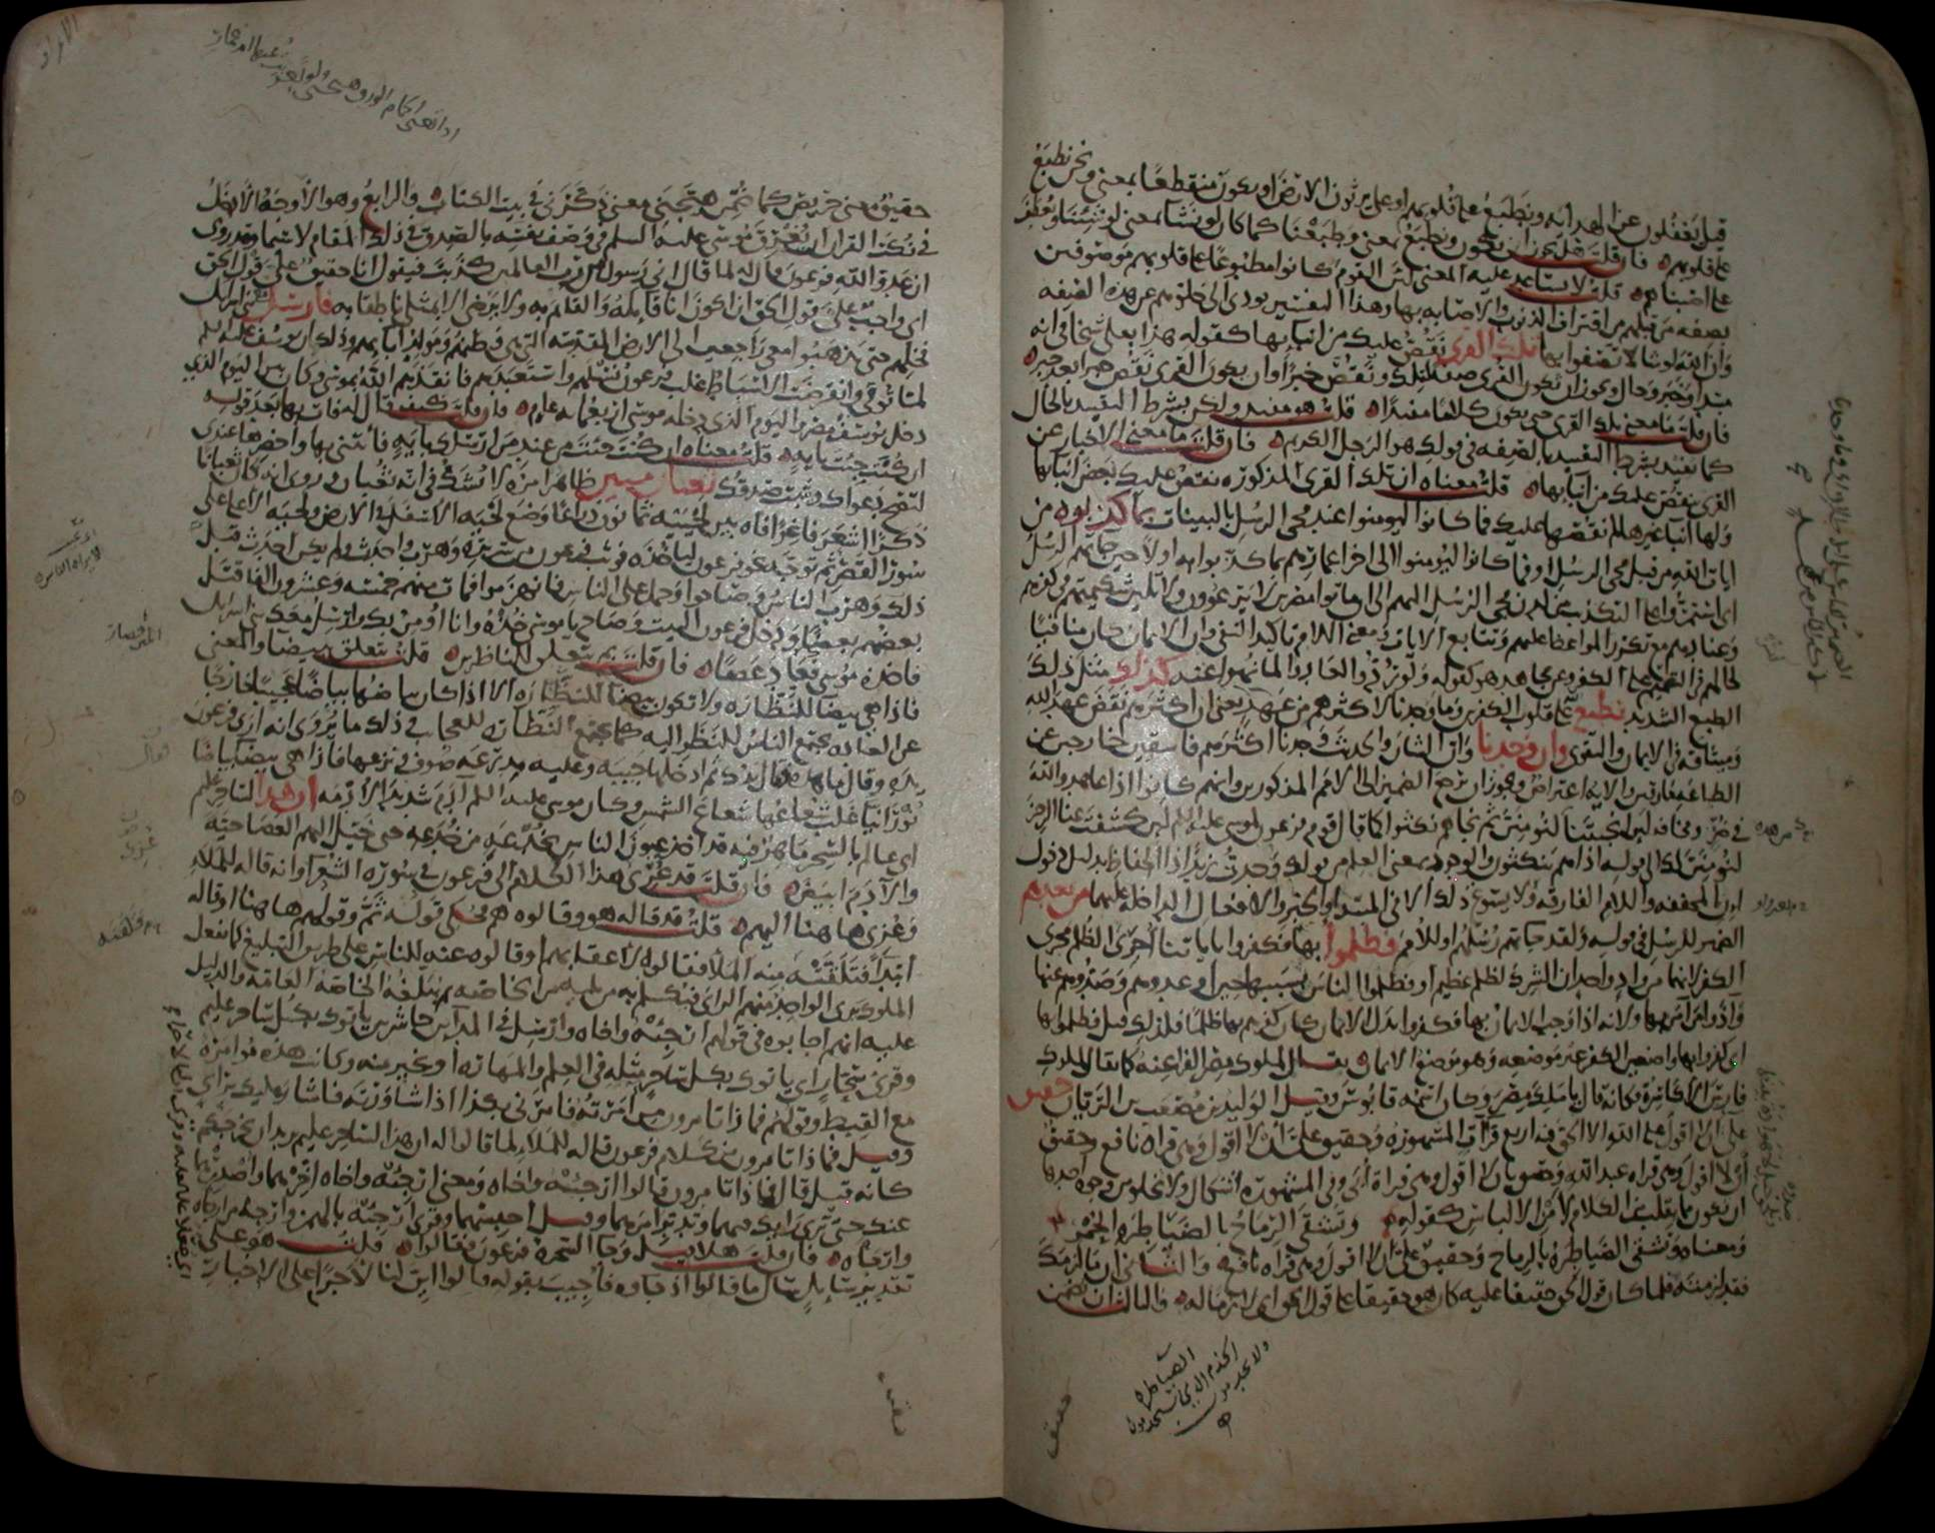 قيل يغفلون عن الهداية ونطبع على قلوبهم او على يرثون الارض او يكون منقطعا بمعنى ونحن نطبع
على قلوبهم فان قلت هل يجوز ان يكون ونطبع بمعنى وطبعنا كما كان لو نشا بمعنى لو شئنا ويعطف
على اصبناهم قلت لا يساعد عليه المعنى لان القوم كانوا مطبوعا على قلوبهم موصوفين
بصفه من قبلهم من اقتراف الذنوب والاصابه بها وهذا التفسير يودى الى خلوهم عن هذه الصفه
وان الله لو شا لاتصفوا بها تلك القرى نقص عليك من انبائها كقوله هذا بعلى شيخا فى انه
مبتدا وخبر وحال ويجوز ان يكون القرى صفه لتلك ونقص خبرا وان يكون القرى نقص خبرا بعد خبر
فان قلت ما معنى تلك القرى حتى يكون كلاما مفيدا قلت هو مفيد ولكن بشرط التقييد بالحال
كما يفيد بشرط التقييد بالصفه فى قولك هو الرجل الكريم فان قلت ما معنى الاخبار عن
القرى بنقص عليك من انبائها قلت معناه ان تلك القرى المذكوره نقص عليك بعض انبائها
ولها انبا غيرها لم نقصها عليك فما كانوا ليومنوا عند مجى الرسل بالبينات بما كذبوه من
ايات الله من قبل مجى الرسل او فما كانوا ليومنوا الى اخر اعمارهم بما كذبوا به اولا حين جاتهم الرسل
اى استمروا على التكذيب من لدن مجى الرسل اليهم الى ان ماتوا مصرين لا يرعوون ولا تلين شكيمتهم فى كفرهم
وعنادهم مع تكرر المواعظ عليهم وتتابع الايات ومعنى اللام تاكيد النفى وان الايمان كان منافيا
لحالهم فى التصميم على الكفر وعن مجاهد هو كقوله ولو ردوا لعادوا لما نهوا عنه كذلك مثل ذلك
الطبع الشديد نطبع على قلوب الكفرين وما وجدنا لاكثرهم من عهد يعنى ان اكثرهم نقض عهد الله
وميثاقه فى الايمان والتقوى وان وجدنا وان الشان والحديث وجدنا اكثرهم فاسقين خارجين عن
الطاعه مارقين والايه اعتراض ويجوز ان يرجع الضمير الى الامم المذكورين وانهم كانوا اذا عاهدوا الله
فى ضر ومخافه لئن انجيتنا لنومنن ثم نجاهم نكثوا كما قال قوم فرعون لموسى عليه السلم لئن كشفت عنا الرجز
لنومنن لك الى قوله اذا هم ينكثون والوجود بمعنى العلم من قولك وجدت زيدا ذا الحفاظ بدليل دخول
ان المخففه واللام الفارقه ولا يسوغ ذلك الا فى المبتدا والخبر والافعال الداخله عليهما من بعدهم
الضمير للرسل فى قوله ولقد جاتهم رسلهم او للامم فظلموا بها فكفروا باياتنا اجرى الظلم مجرى
الكفر لانهما من واد واحد ان الشرك لظلم عظيم او فظلموا الناس بسببها حين اوعدوهم وصدوهم عنها
واذوا من امن بها ولانه اذا وجب الايمان بها فكفروا بدل الايمان كان كفرهم بها ظلما فلذلك قيل فظلموا بها
اى كفروا بها واضعين الكفر غير موضعه وهو موضع الايمان يقال لملوك مصر الفراعنه كما يقال لملوك
فارس الاكاسره وكانه قال يا ملك مصر وكان اسمه قابوس وقيل الوليد بن مصعب بن الريان حقيق
على ان لا اقول على الله الا الحق فيه اربع قرآت المشهوره وحقيق على ان لا اقول وهى قراه نافع وحقيق
ان لا اقول وهى قراه عبد الله وحقيق بان لا اقول وهى قراة ابى وفى المشهوره اشكال ولا تخلوا من وجوه احدها
ان يكون مما يقلب من الكلام لامن الالباس كقوله وتشقى الرماح بالضياطره الحمر
ومعناه وتشقى الضياطره بالرماح وحقيق على ان لا اقول وهى قراه نافع والثانى ان ما لزمك
فقد لزمته فلما كان قول الحق حقيقا عليه كان هو حقيقا على قول الحق اى لازما له والثالث ان يضمن
الضياطره
حقيق
حقيق معنى حريص كما ضمن هيجنى معنى ذكرنى فى بيت الكتاب والرابع وهو الاوجه الادخل
فى نكت القران ان يغرق موسى عليه السلم فى وصف نفسه بالصدق فى ذلك المقام لا سيما وقد روى
ان عدو الله فرعون قال له لما قال انى رسول من رب العالمين كذبت فيقول انا حقيق على قول الحق
اى واجب على قول الحق ان اكون انا قائله والقائم به ولا يرضى الا بمثلى ناطقا به فارسل معى بنى اسرائل
فخلهم حتى يذهبوا معى راجعين الى الارض المقدسه التى هى وطنهم ومولد ابائهم وذلك ان يوسف عليه السلم
لما توفى وانقرضت الاسباط غلب فرعون نسلهم واستعبدهم فانقذهم الله بموسى وكان بين اليوم الذى
دخل يوسف مصر واليوم الذى دخله موسى اربعمايه عام فان قلت كيف قال له فات بها بعد قوله
ان كنت جيت بايه قلت معناه ان كنت جئت من عند من ارسلك بايه فاتنى بها واحضرها عندى
لتصح دعواك ويثبت صدقك ثعبان مبين ظاهر امره لا يشك فى انه ثعبان وروى انه كان ثعبانا
ذكرا اشعر فاغرا فاه بين لحييه ثمانون ذراعا وضع لحيه الاسفل فى الارض ولحيه الاعلى على
سور القصر ثم توجه نحو فرعون لياخذه فوثب فرعون من سريره وهرب واحدث ولم يكن احدث قبل
ذلك وهرب الناس وصاحوا وحمل على الناس فانهزموا فمات منهم خمسه وعشرون الفا قتل
بعضهم بعضا ودخل فرعون البيت وصاح يا موسى خذه وانا اومن بك وارسل معك بنى اسرائل
فاخذه موسى فعاد عصا فان قلت بم تعلق للناظرين قلت يتعلق ببيضا والمعنى
فاذا هى بيضا للنظاره ولا تكون بيضا للنظاره الا اذا كان بياضها بياضا عجيبا خارجا
عن العاده يجتمع الناس للنظر اليه كما يجتمع النظاره للعجائب وذلك ما يروى انه ارى فرعون
يده وقال ما هذه قال يدك ثم ادخلها جيبه وعليه مدرعه صوف ونزعها فاذا هى بيضا بياضا
نورانيا غلب شعاعها شعاع الشمس وكان موسى عليه السلم آدم شديد الادمه ان هذا لساحر عليم
اى عالم بالسحر ماهر فيه قد اخذ عيون الناس بخدعه من خدعه حتى خيل اليهم العصا حيه
والآدم ابيض فان قلت قد عزى هذا الكلام الى فرعون فى سوره الشعرا وانه قاله للملا
وعزى ها هنا اليهم قلت قد قاله هو وقالوه هم فحكى قوله ثم وقولهم ها هنا او قاله
ابتدا فتلقته منه الملا فقالوه لاعقابهم او قالوه عنه للناس على طريق التبليغ كما يفعل
الملوك يرى الواحد منهم الراى فيكلم به من يليه من الخاصه ثم تبلغه الخاصه العامه والدليل
عليه انهم اجابوه فى قولهم ارجئه واخاه وارسل فى المداين حاشرين ياتوك بكل ساحر عليم
وقرى سحار اى ياتوك بكل ساحر مثله فى العلم والمهاره او بخير منه وكانت هذه موامره
مع القبط وقولهم فماذا تامرون من امرته فامرنى بكذا اذا شاورته فاشار عليك براى
وقيل فماذا تامرون من كلام فرعون قاله للملا لما قالوا له ان هذا لساحر عليم يريد ان يخرجكم
كانه قيل قال فماذا تامرون قالوا ارجئه واخاه ومعنى ارجئه واخاه اخرهما واصدرهما
عنك حتى ترى رايك فيهما وتدبر امرهما وقيل احبسهما وقرى ارجئه بالهمز وارجه من ارجاه
وارجاه فان قلت هلا قيل وجا السحره فرعون فقالوا قلت هو على
تقدير سايل سال ما قالوا اذ جاوه فاجيب بقوله قالوا ائن لنا لاجرا على الاخبار